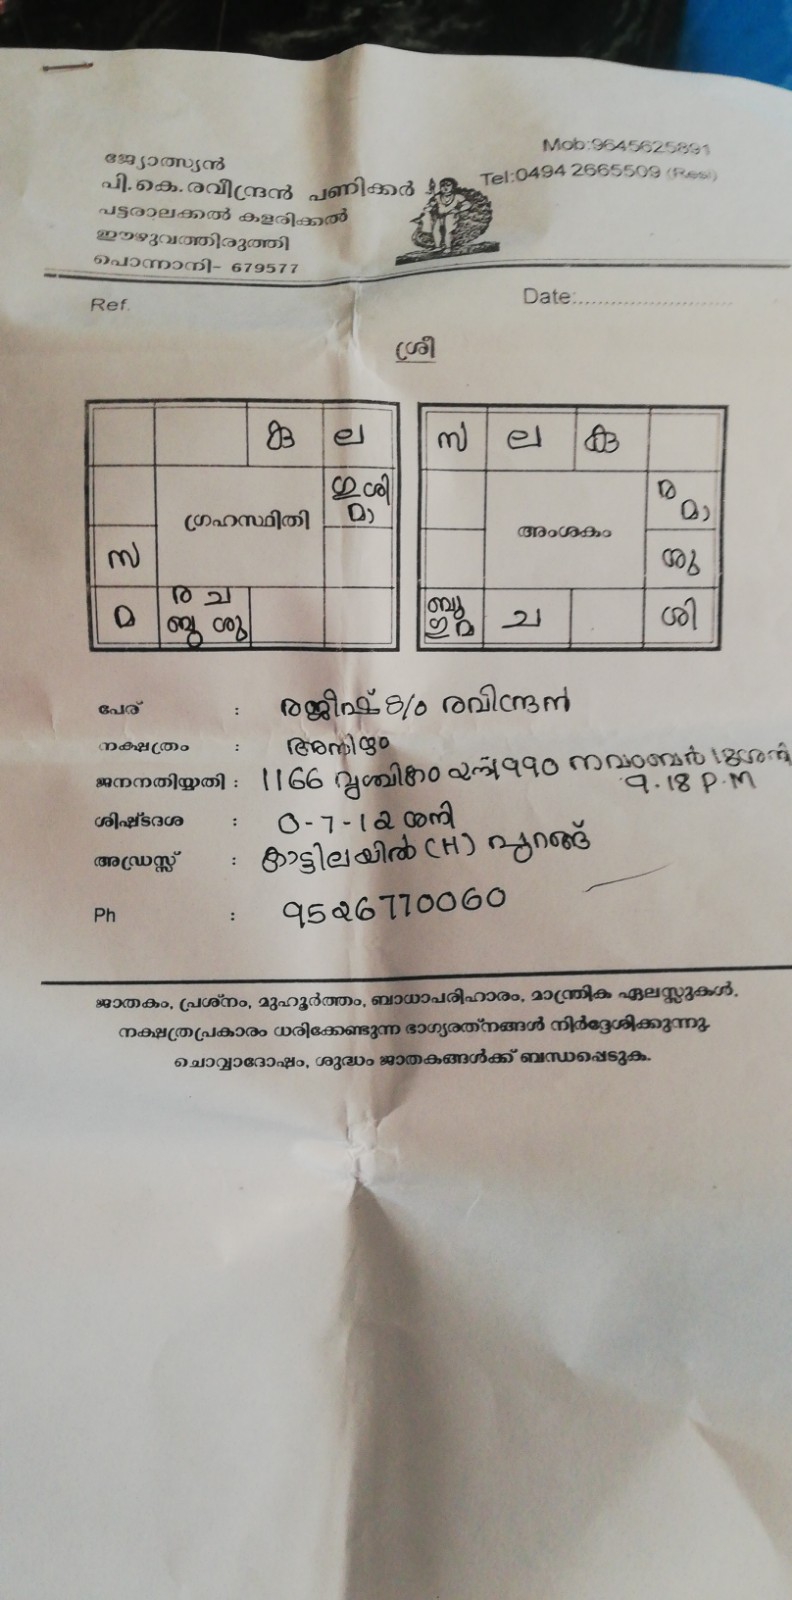 ജ്യോത്സ്യൻ
പി.കെ.രവീന്ദ്രൻ പണിക്കർ
പട്ടരാലക്കൽ കളരിക്കൽ
ഈഴുവത്തിരുത്തി
പൊന്നാനി- 679577
Mob:9645625891
Tel:0494 2665509 (Resi)
Ref.
Date:..........................
ശ്രീ
കു ല
ഗു ശി
മാ
ഗ്രഹസ്ഥിതി
സ
മ
ര ച
ബു ശു
സ ല കു
ര
മാ
അംശകം
ശു
ബു
ഗു മ
ച
ശി
പേര് : രജീഷ് S/o രവീന്ദ്രൻ
നക്ഷത്രം : അനിഴം
ജനനതിയ്യതി : 1166 വൃശ്ചികം 2ന് 1990 നവംബർ 18
9.18 P.M
ശിഷ്ടദശ : 0-7-12 ശനി
അഡ്രസ്സ് : കാട്ടിലയിൽ (H) പുറങ്ങ്
Ph : 9526770060
ജാതകം, പ്രശ്നം, മുഹൂർത്തം, ബാധാപരിഹാരം, മാന്ത്രിക ഏലസ്സുകൾ.
നക്ഷത്രപ്രകാരം ധരിക്കേണ്ടുന്ന ഭാഗ്യരത്നങ്ങൾ നിർദ്ദേശിക്കുന്നു.
ചൊവ്വാദോഷം, ശുദ്ധം ജാതകങ്ങൾക്ക് ബന്ധപ്പെടുക.